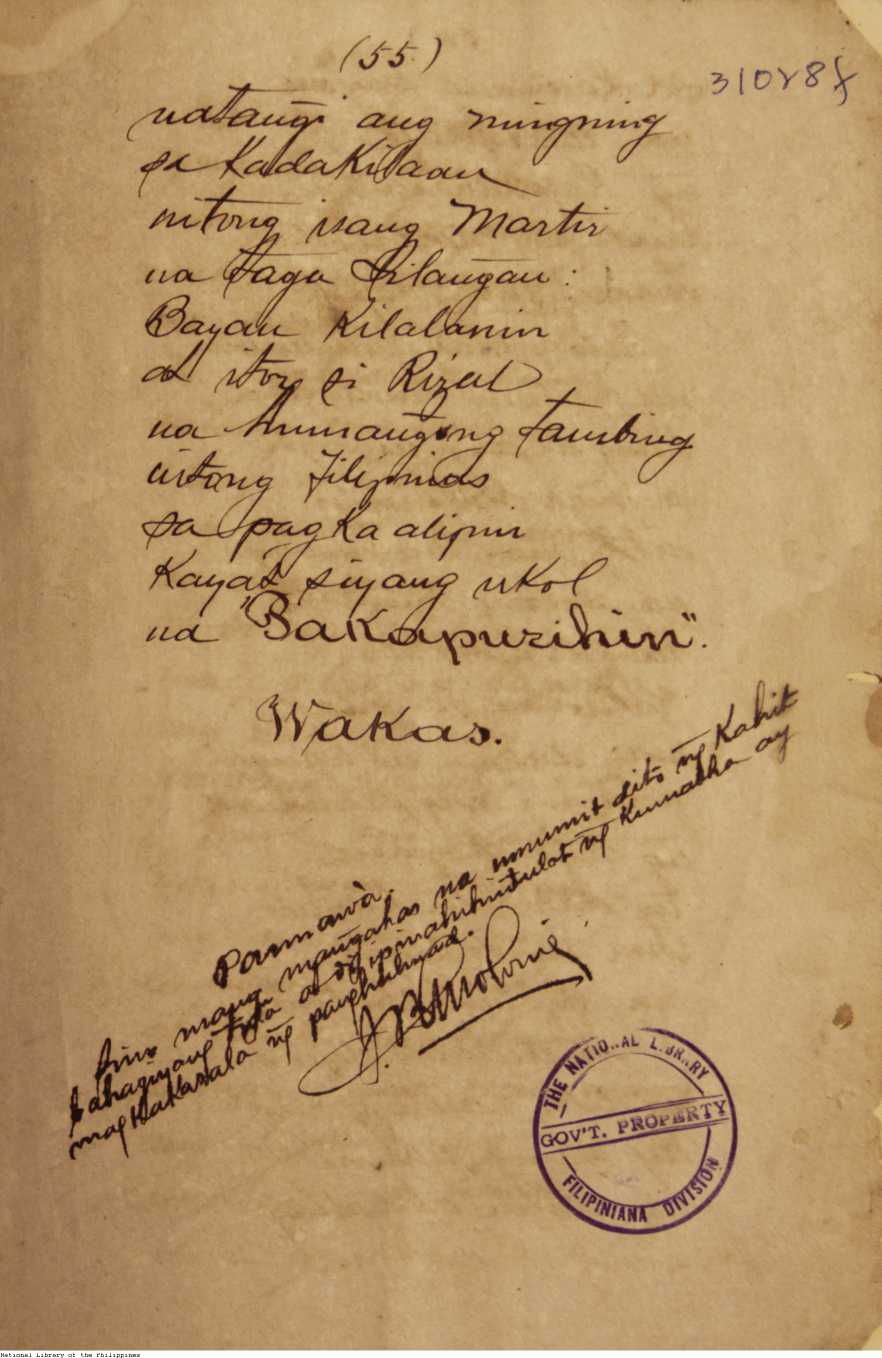 (55)
310285
natangi ang ningning
sa Kadakilaan
nitong isang Martir
na taga Silangan:
Bayan Kilalanin
at itoy si Rizal
na humangong tambing
nitong Filipinas
sa pagka alipin
Kayat siyang ukol
na "Bakapurihin".
Wakas.
Paunawa.
Sino mang mangahas na umumit dito ng Kahit
bahagyang tula at di ipinahihintulot ng Kumatha ay
magkakasala ng panghihuwad.
THE NATIONAL LIBRARY
GOV'T. PROPERTY
FILIPINIANA DIVISION
National Library of the Philippines